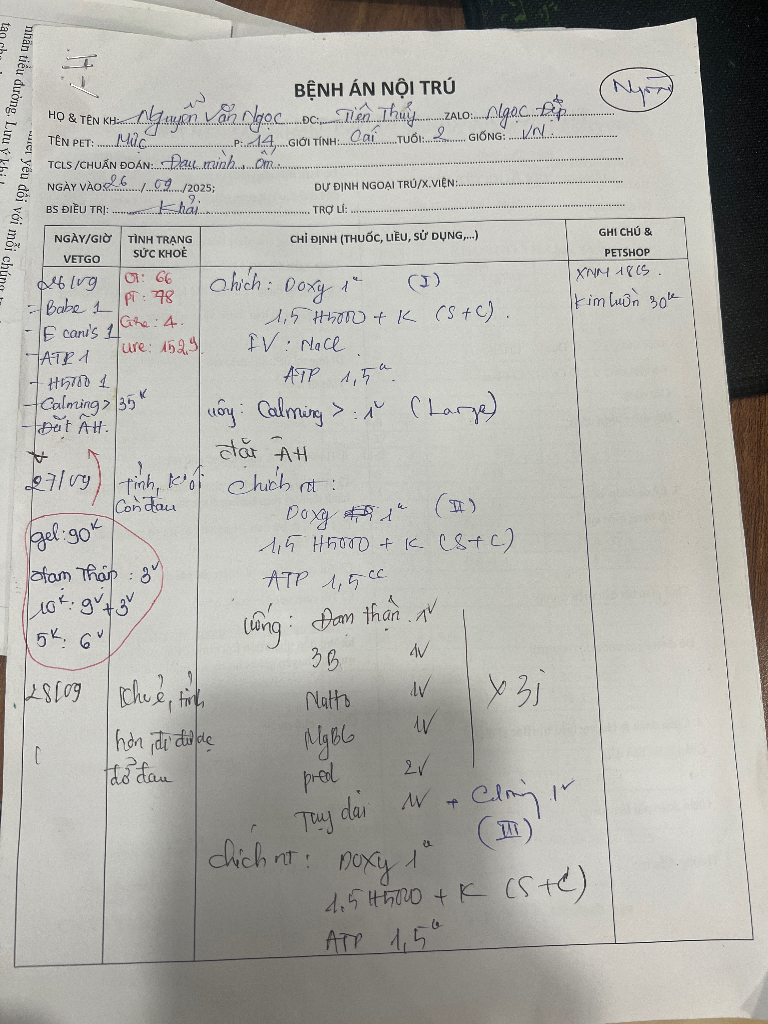 BỆNH ÁN NỘI TRÚ
HỌ & TÊN KH: Nguyễn Văn Ngọc ĐC: Tiên Thủy ZALO: Ngọc Điệp
TÊN PET: Mức P: 14 GIỚI TÍNH: Cái TUỔI: 2 GIỐNG: VN
TCLS /CHUẨN ĐOÁN: Đau mình, ốm
NGÀY VÀO: 26 / 09 /2025; DỰ ĐỊNH NGOẠI TRÚ/X.VIỆN:
BS ĐIỀU TRỊ: Khải TRỢ LÍ:
NGÀY/GIỜ VETGO TÌNH TRẠNG SỨC KHOẺ CHỈ ĐỊNH (THUỐC, LIỀU, SỬ DỤNG,...) GHI CHÚ & PETSHOP
26/09
- Babe 1
- E canis 1
- ATP 1
- H5000 1
- Calming > 35k
- Đặt ÂH.
66
PT: 78
Cre: 4.
ure: 152,9
Chích: Doxy 1cc (I)
1,5 H5000 + K (S+C).
IV: NaCl
ATP 1,5cc.
uống: Calming >: 1v (Large)
đặt ÂH
XNM 18(S.
Kim luồn 30k
27/09
tỉnh,
còn đau
gel: 90k
đạm thận: 3v
10k: 9v + 3v
5k: 6v
Chích nt:
Doxy 1cc (II)
1,5 H5000 + K (S+C)
ATP 1,5cc
uống: Đạm thận 1v
3B 1v
Natto 1v
MgB6 1v
pred 2v
Tụy dài 1v + Calming 1v
x 3j
(III)
28/09
khỏe, tỉnh
hơn, đi được
đỡ đau
Chích nt: Doxy 1cc
1,5 H5000 + K (S+C)
ATP 1,5cc